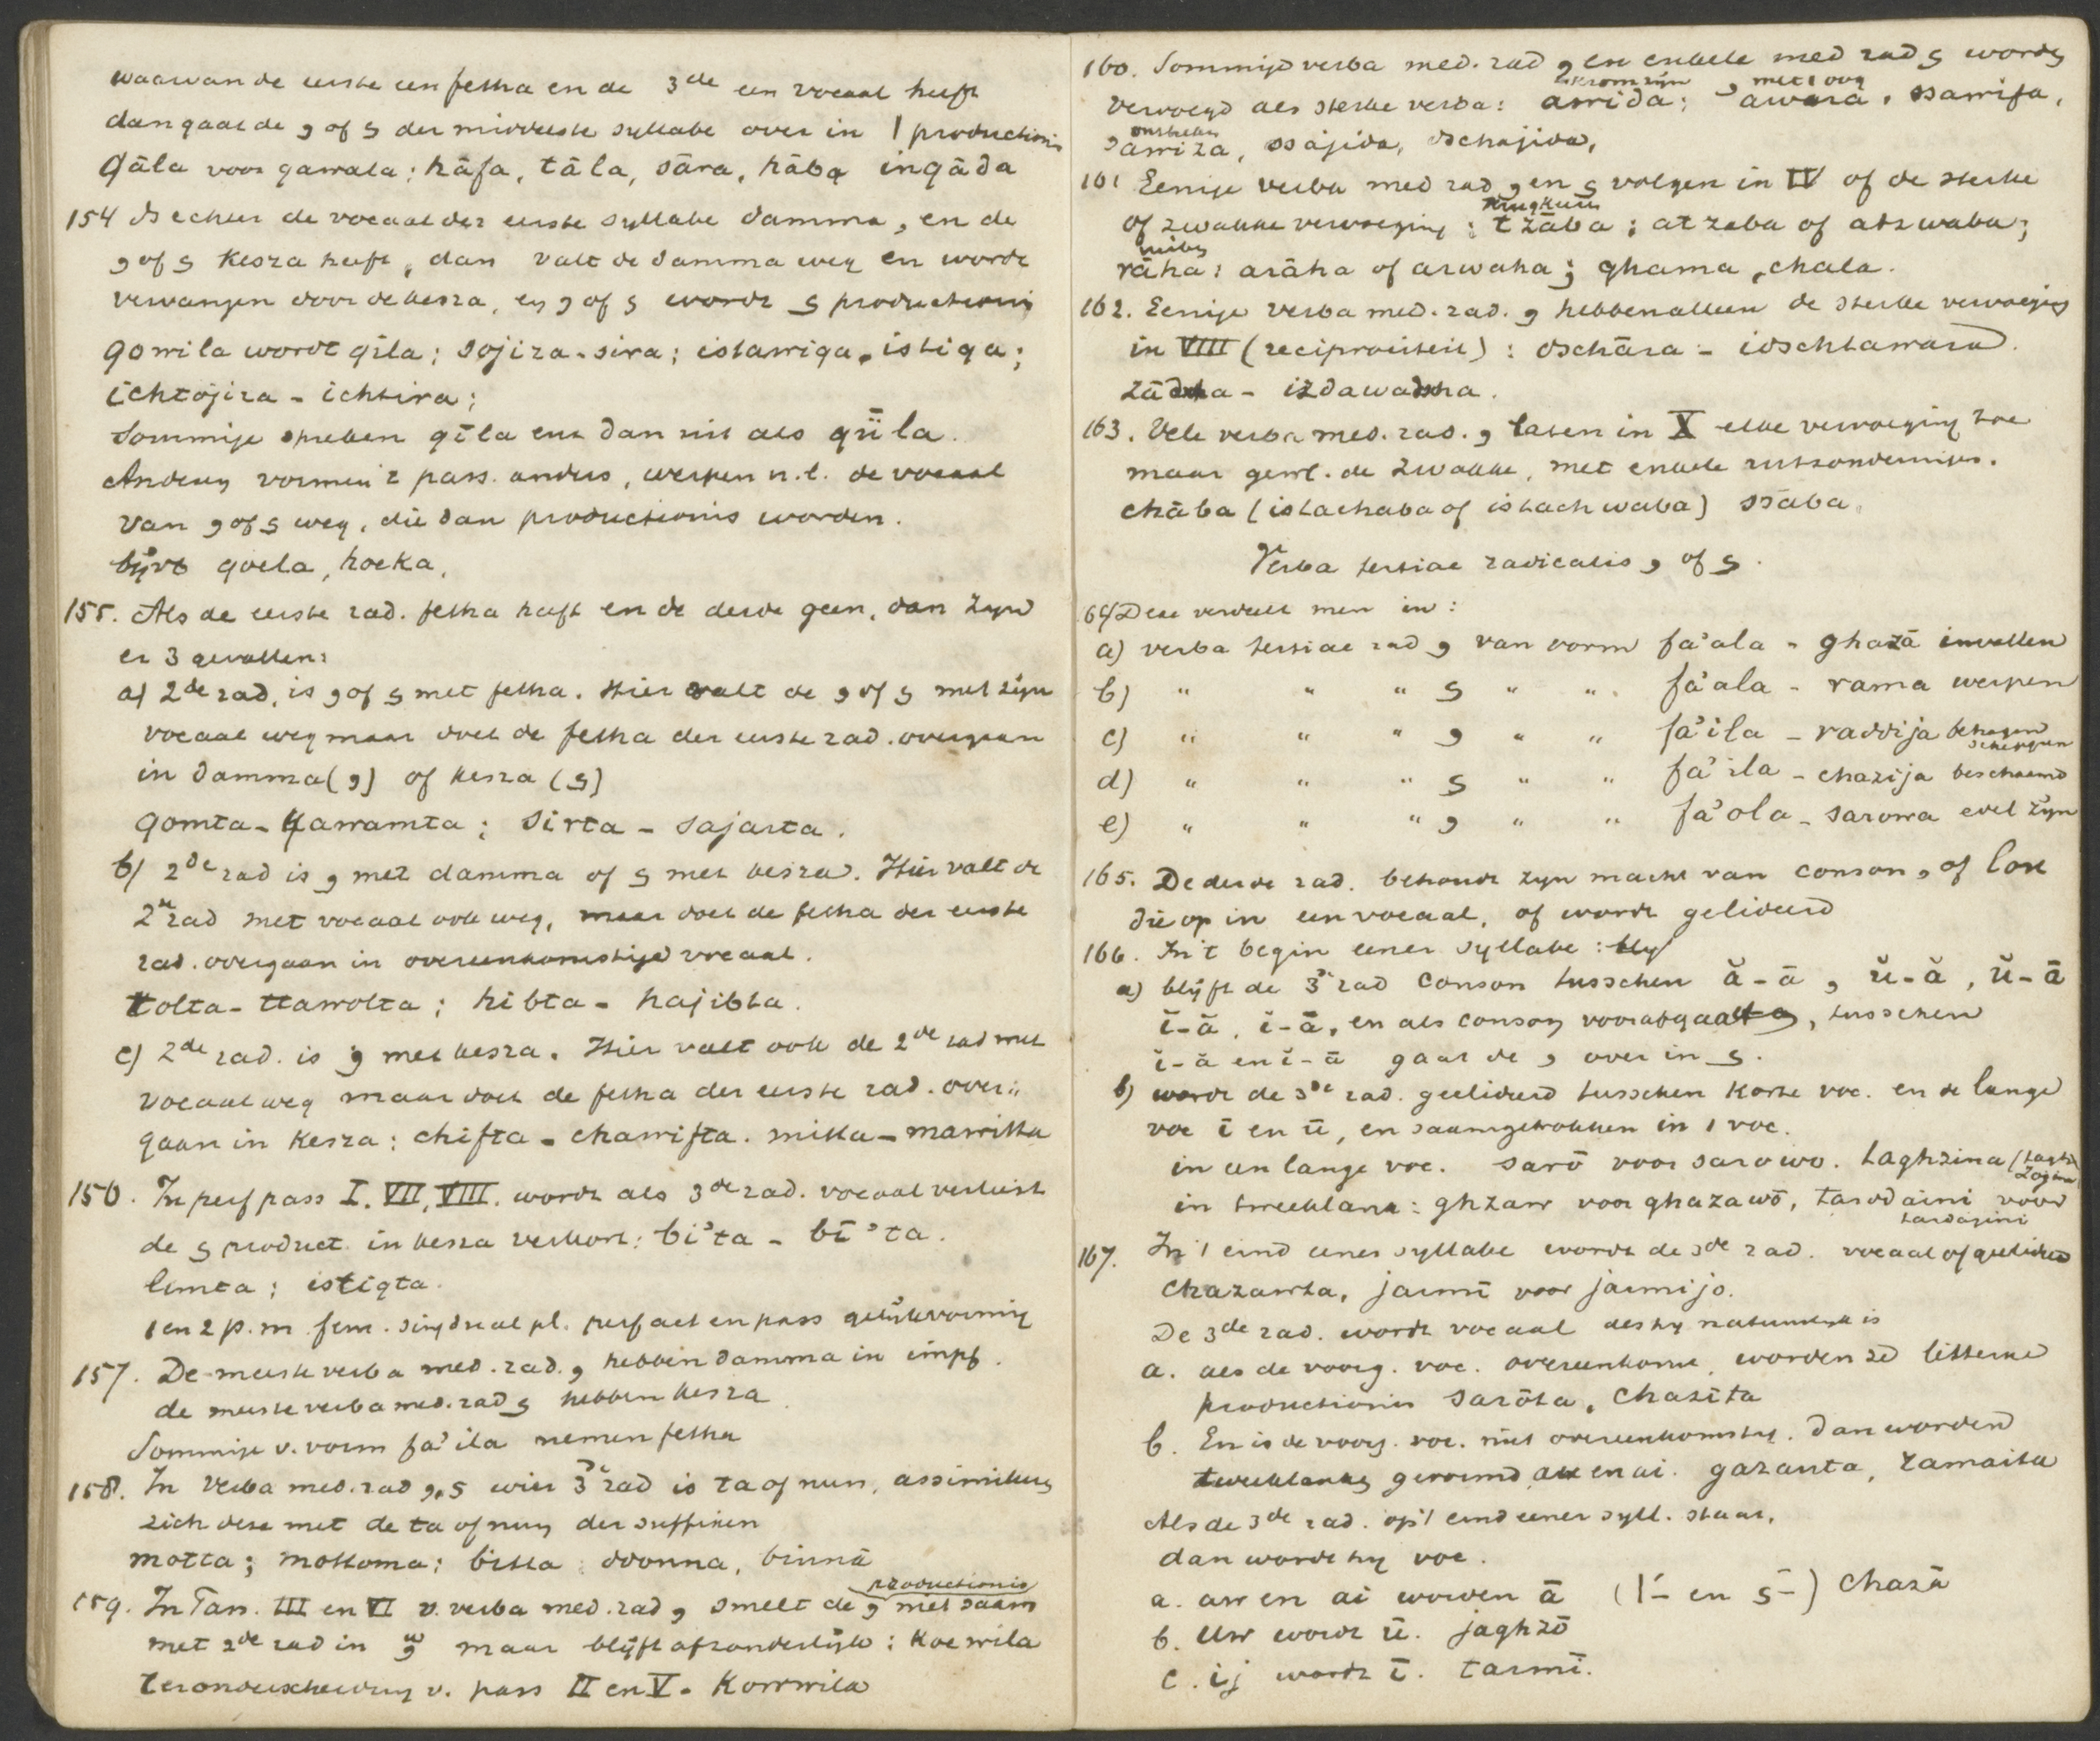 waarvan de eerste een fetha en de 3de een vocaal heeft
dan gaat de و of ى der middelste syllabe over in ا productionis
Qāla voor qawala; hāfa, tāla, sāra, hāba inqāda
154 Is echter de vocaal der eerste syllabe damma, en de
و of ى kesra heeft, dan valt de damma weg en wordt
vervangen door de kesra, en و of ى wordt ى productionis
qowila wordt qīla; sojira - sira; istawiqa, istiqa;
ichtojira - ichtira;
Sommige spreken qīla enz dan uit als qüla.
Anderen vormen 't pass. anders, werpen n.l. de vocaal
van و of ى weg, die dan productionis worden.
bijvb qoela, hoeka,
155. Als de eerste rad. fetha heeft en de derde geen, dan zijn
er 3 gevallen:
a) 2de rad. is و of ى met fetha. Hier valt de و of ى met zijn
vocaal weg maar doet de fetha der eerste rad. overgaan
in damma (و) of kesra (ى)
qomta - qawamta; sirta - sajarta.
b) 2de rad is و met damma of ى met kesra. Hier valt de
2e rad met vocaal ook weg, maar doet de fetha der eerste
rad. overgaan in overeenkomstige vocaal.
tolta - ttawolta; hibta - hajibta.
c) 2de rad. is و met kesra. Hier valt ook de 2de rad met
vocaal weg maar doet de fetha der eerste rad. over=
gaan in kesra: chifta - chawifta. mitta - mawitta
156. In perf pass I. VII, VIII. wordt als 3de rad. vocaal verliest
de ى product. in kesra verkort: bi'ta - bī'ta.
limta; istiqta.
1 en 2 p. m fem. sing dual pl. perf act en pass gelijkvormig
157. De meeste verba med. rad. و hebben damma in impf.
de meeste verba med. rad ى hebben kesra
Sommige v. vorm fa'ila nemen fetha
158. In verba med. rad و, ى wier 3de rad is ta of nun, assimileren
zich deze met de ta of nun der suffixen
motta; mottoma; bitta; donna, binnā
productionis
159. In Tan. III en VI v. verba med. rad و smelt de و niet saam
met 2de rad in وّ maar blijft afzonderlijk: koewila
ter onderscheiding v. pass II en V - Kowwila
160. Sommige verba med. rad و en enkele med rad ى worden
krom zijn met 1 oog
vervoegd als sterke verba: awida; 'awara, ssawifa,
'awiza, ssajida, dschajida,
161 Eenige verba med rad و en ى volgen in IV of de sterke
of zwakke vervoeging: tzāba; atzaba of atzwaba;
rāha: arāha of arwaha; ghama, chala.
162. Eenige verba med. rad. و hebben alleen de sterke vervoeging
in VIII (reciprociteit): dschāra - idschtawara.
zādcha - izdawadscha.
163. Vele verba med. rad. و laten in X elke vervoeging toe
maar gewl. de zwakke, met enkele uitzonderingen.
chāba (istachaba of istachwaba) ssāba.
Verba tertiae radicalis و of ى.
64) Deze verdeelt men in:
a) verba tertiae rad و van vorm fa'ala - ghazā invallen
b) " " " ى " " fa'ala - rama werpen
c) " " " و " " fa'ila - raddija behagen
scheppen
d) " " " ى " " fa'ila - chazija beschaamd
e) " " " و " " fa'ola - sarowa edel zijn
165. De derde rad. behoudt zijn macht van conson, of lost
die op in een vocaal, of wordt gelideerd
166. In 't begin eener syllabe:
a) blijft de 3e rad conson tusschen ă - ā, ŭ - ă, ŭ - ā
ĭ - ă, ĭ - ā, en als conson voorafgaat, tusschen
ĭ - ă en ĭ - ā gaat de و over in ى.
b) wordt de 3de rad. geelideerd tusschen korte voc. en de lange
voc ī en ū, en saamgetrokken in 1 voc.
in een lange voc. sarō voor sarowo. taghzina
in tweeklank: ghzaw voor ghazawō, tardaini voor
tardajini
167. In 't eind eener syllabe wordt de 3de rad. vocaal of geelideerd
chazawta, jarmī voor jarmijo.
De 3de rad. wordt vocaal des hij natuurlijk is
a. als de voorg. voc. overeenkomt, worden ze litterae
productionis sarōta, chazīta
b. En is de voorg. voc. niet overeenkomstig. dan worden
tweeklanken gevormd au en ai. gazauta, ramaita
Als de 3de rad. op 't eind eener syll. staat,
dan wordt hij voc.
a. aw en ai worden ā (ا- en ى-) chazā
b. Uw wordt ū. jaghzō
c. ij wordt ī. tarmī.